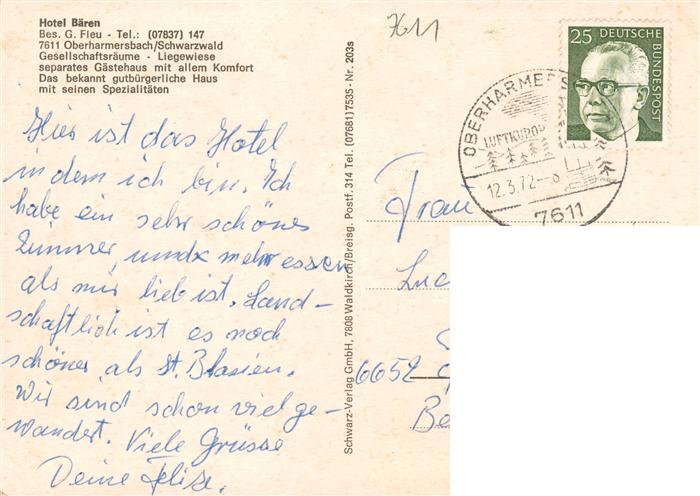 Hotel Bären
Bes. G. Fleu - Tel.: (07837) 147
7611 Oberharmersbach/Schwarzwald
Gesellschaftsräume - Liegewiese
separates Gästehaus mit allem Komfort
Das bekannt gutbürgerliche Haus
mit seinen Spezialitäten
Hier ist das Hotel
in dem ich bin. Ich
habe ein sehr schönes
Zimmer, und mehr essen
als mir lieb ist. Land-
schaftlich ist es noch
schöner als St. Blasien.
Wir sind schon viel ge-
wandert. Viele Grüsse
Deine Felise.
Schwarz-Verlag GmbH, 7808 Waldkirch/Breisg. Postf. 314 Tel. (07681) 7535 - Nr. 203s
7611
25 DEUTSCHE BUNDESPOST
OBERHARMERS
LUFTKUROR
12.3.72-8
7611
Frau
Luc
6652
Be